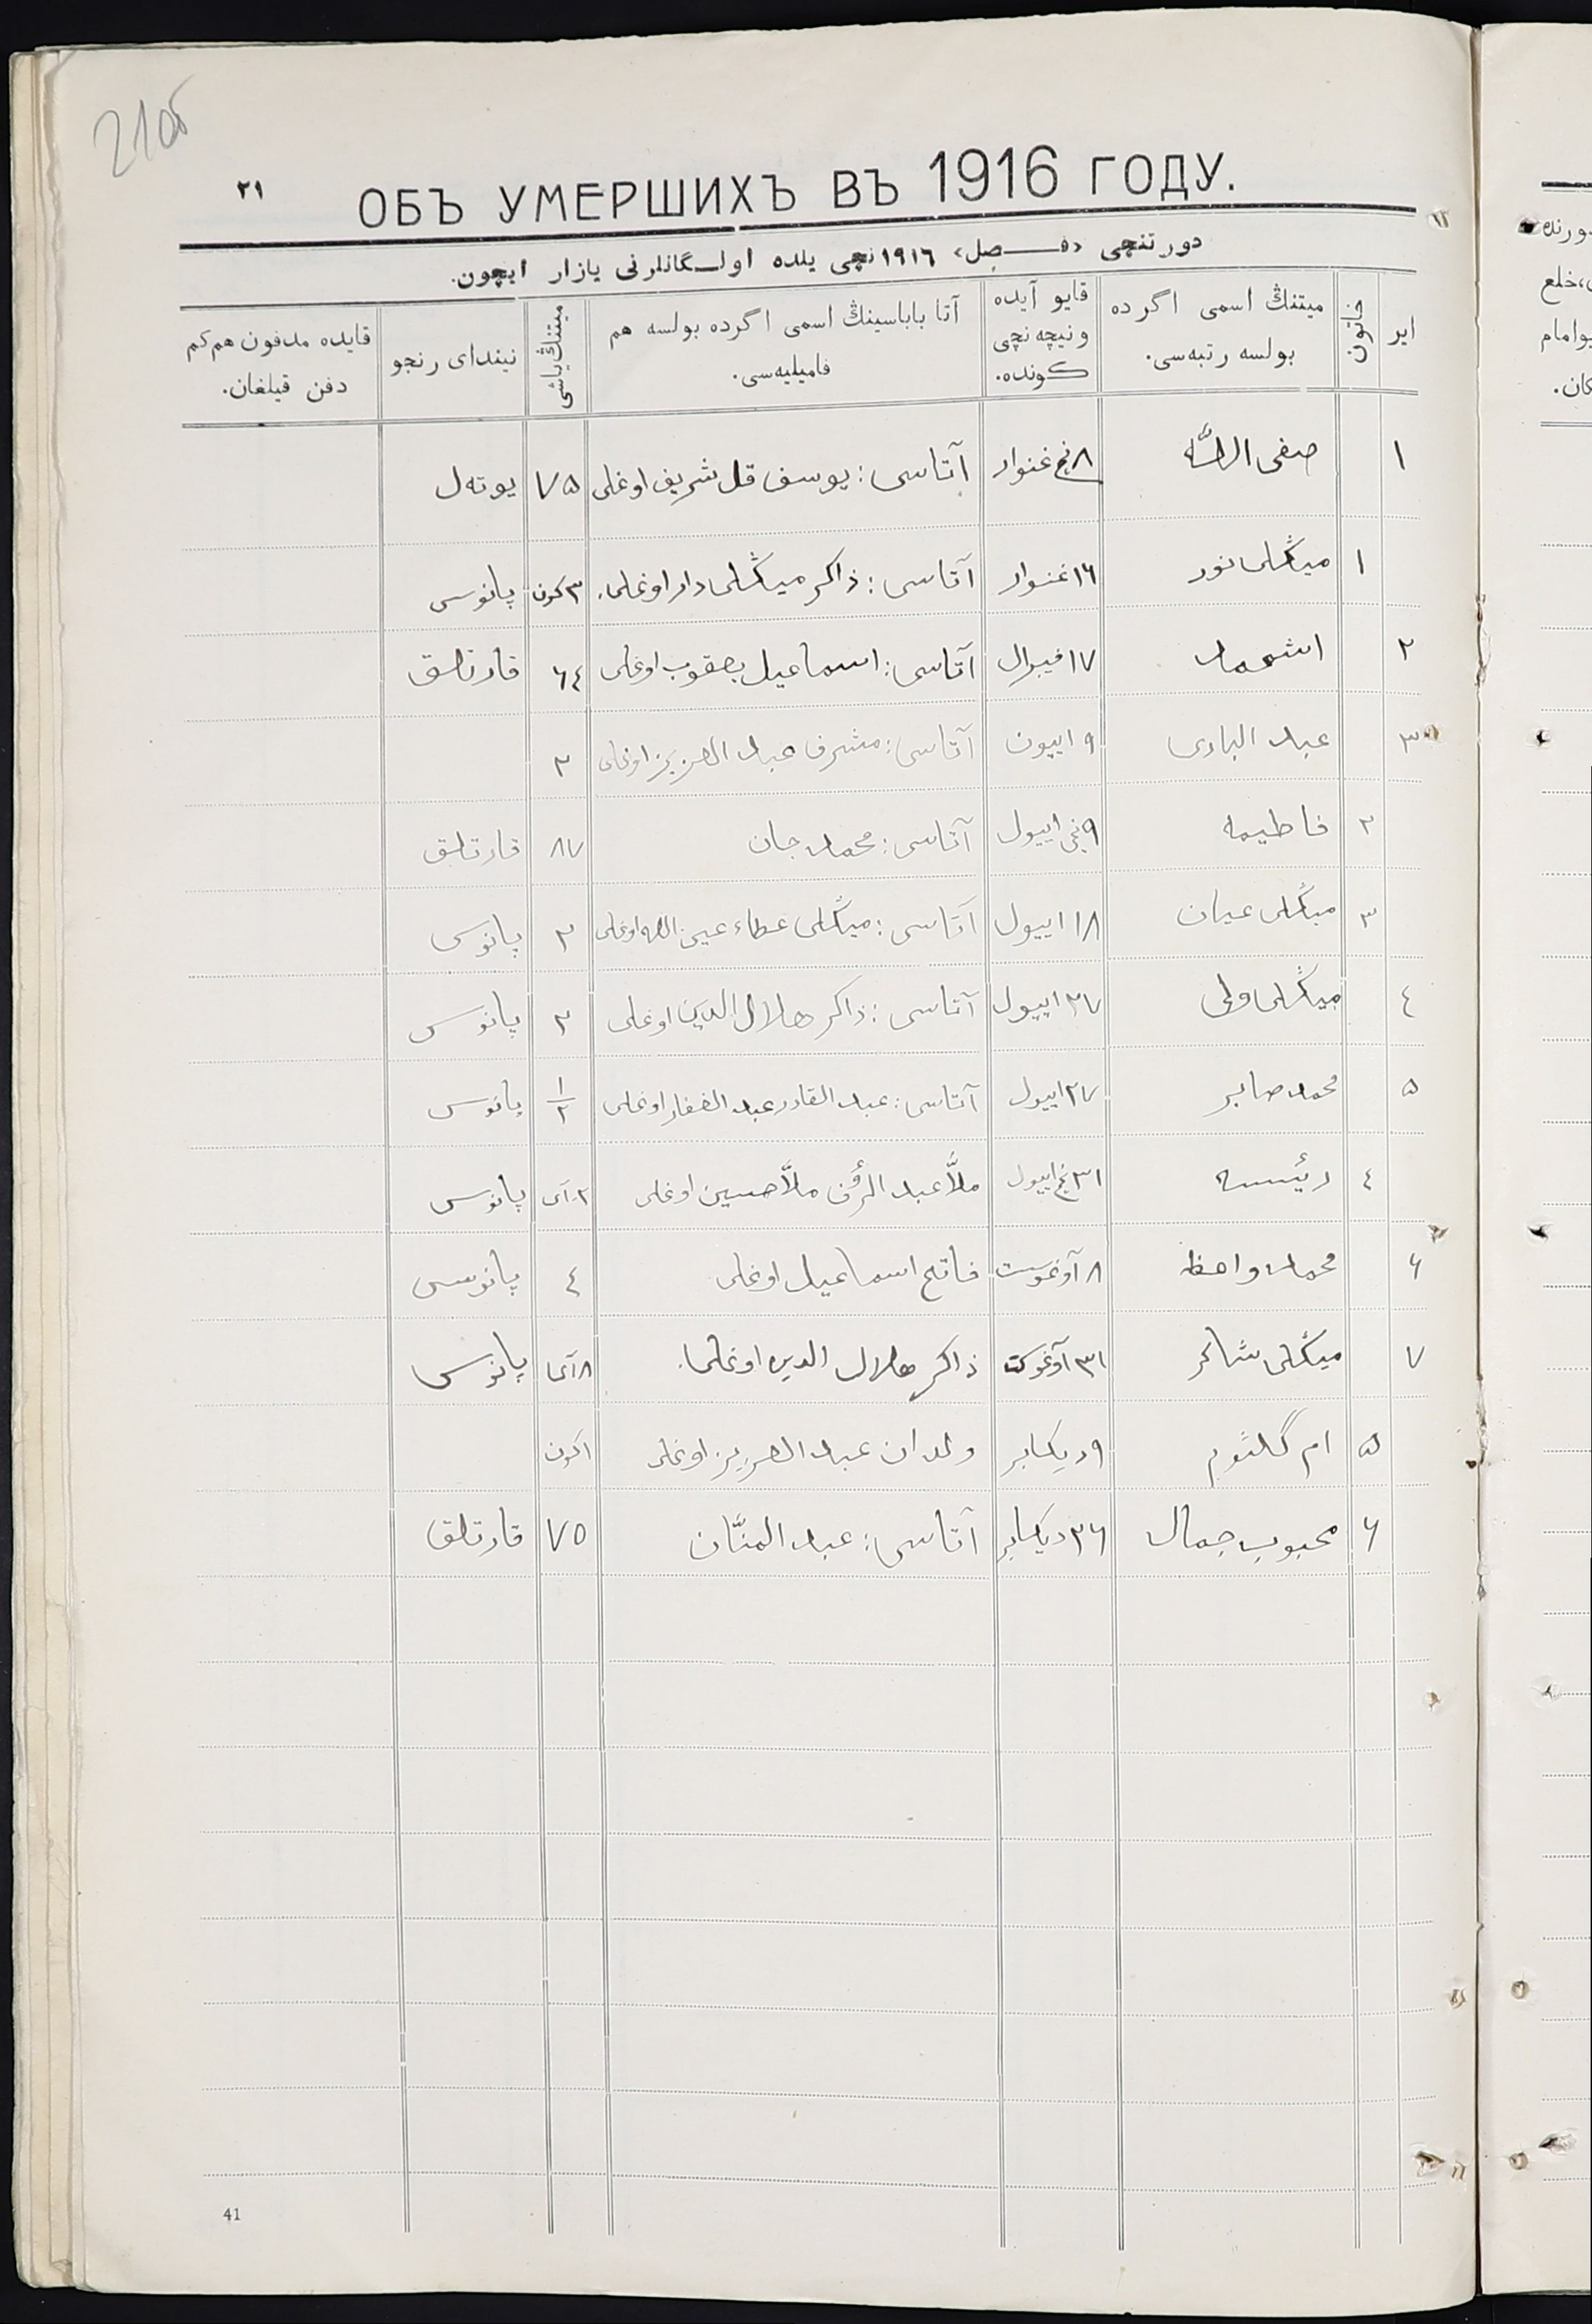 21об
٢١
ОБЪ УМЕРШИХЪ ВЪ 1916 ГОДУ.
دورتنچی «فصل» ١٩١٦ نچی یلده اولگانلرنی یازار ایچون.
ایر
خاتون
میتنڭ اسمی اگرده بولسه رتبه‌سی.
قایو آیده ونیچه‌نچی کونده.
آتا باباسینڭ اسمی اگرده بولسه هم فامیلیه‌سی.
میتنڭ یاشی
نیندای رنجو
قایده مدفون هم کم دفن قیلغان.
١ صفی اللّه ٨نچی غنوار آتاسی: یوسف قل شریف اوغلی ٧۵ یوتەل
١ میڭلی نور ١٦ غنوار آتاسی: ذاکر میڭلی دار اوغلی. ٣ کون پانوسی
٢ اشمحمد ١٧ فیبرال آتاسی: اسماعیل یعقوب اوغلی ٦٤ قارتلق
٣ عبد الباری ٩ اییون آتاسی: مشرف عبد العزیز اوغلی ٢
٢ فاطیمه ٩نچی اییول آتاسی: محمد جان ٨٧ قارتلق
٣ میڭلی عیان ١٨ اییول آتاسی: میڭلی عطاء عین الله اوغلی ٢ پانوس
٤ میڭلی ولی ٢٧ اییول آتاسی: ذاکر هلال الدین اوغلی ٢ پانوس
۵ محمد صابر ٢٧ اییول آتاسی: عبد القادر عبد الغفار اوغلی ١/٢ پانوس
٤ رئیسه ٣١نچی اییول ملاّ عبد الرؤف ملاّ حسین اوغلی ٢ آی پانوس
٦ محمد واعظ ٨ آوغوست فاتح اسماعیل اوغلی ٤ پانوسی
٧ میڭلی شاکر ٣١ آوغوست ذاکر هلال الدین اوغلی. ٨ آی پانوسی
۵ ام گلثوم ٩ دیکابر ولدان عبد العزیز اوغلی ١ کون
٦ محبوب جمال ٢٦ دیکابر آتاسی: عبد المنّان ٧٥ قارتلق
41
ورنده
خلع
بوامام
کان.